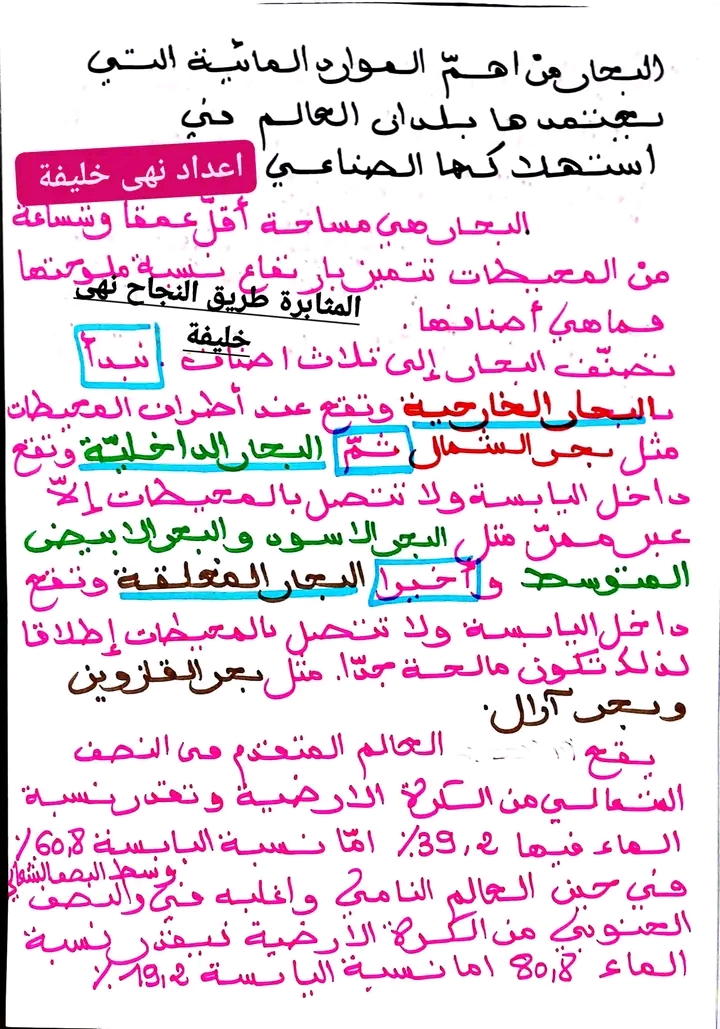 البحار من اهمّ الموارد المائية التي
تعتمدها بلدان العالم في
استهلاكها الصناعي
اعداد نهى خليفة
البحار هي مساحة أقلّ عمقا وشساعة
من المحيطات تتميز بارتفاع نسبة ملوحتها
المثابرة طريق النجاح نهى
خليفة
فما هي أصنافها.
تصنّف البحار إلى ثلاث اصناف. نبدأ
بالبحار الخارجية وتقع عند أطراف المحيطات
مثل بحر الشمال ثمّ البحار الداخليّة وتقع
داخل اليابسة ولا تتصل بالمحيطات إلاّ
عبر ممرّ مثل البحر الاسود والبحر الابيض
المتوسط وأخيرا البحار المغلقة وتقع
داخل اليابسة ولا تتصل بالمحيطات إطلاقا
لذلك تكون مالحة جدّا. مثل بحر القزوين
وبحر آرال.
يقع العالم المتقدم في النصف
الشمالي من الكرة الارضية وتقدر نسبة
الماء فيها 39,2% امّا نسبة اليابسة 60,8%
وسط النصف الشمالي
في حين العالم النامي واغلبه في والنصف
الجنوبي من الكرة الارضية فيقدر نسبة
الماء 80,8 اما نسبة اليابسة 19,2%